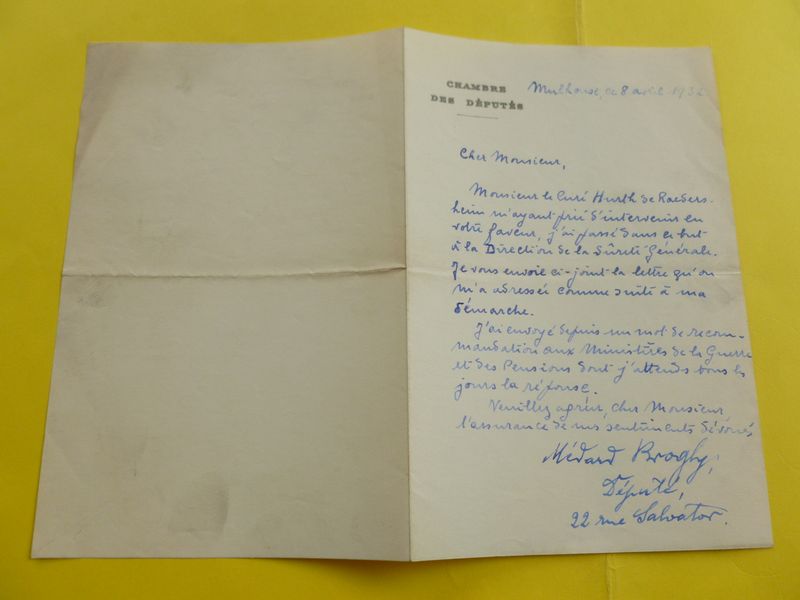 CHAMBRE
DES DÉPUTÉS
Mulhouse, le 8 avril 1932
Cher Monsieur,
Monsieur le Curé Hurth de Raeders-
heim m'ayant prié d'intervenir en
votre faveur, j'ai passé dans ce but
à la Direction de la Sûreté Générale.
Je vous envoie ci-joint la lettre qu'on
m'a adressée comme suite à ma
démarche.
J'ai envoyé depuis un mot de recom-
mandation aux Ministères de la Guerre
et des Pensions dont j'attends tous les
jours la réponse.
Veuillez agréer, cher Monsieur
l'assurance de mes sentiments dévoués
Médard Brogly,
Député,
22 rue Salvator.